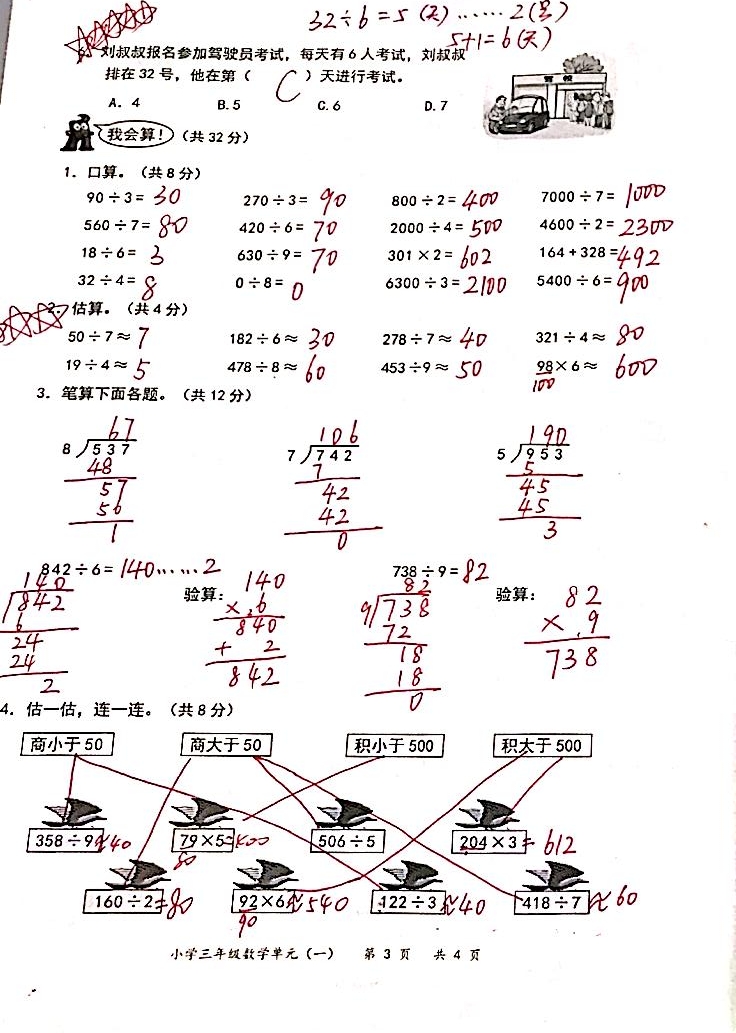 32÷6=5(天)……2(号)
5+1=6(天)
刘叔叔报名参加驾驶员考试，每天有6人考试，刘叔叔
排在32号，他在第（ C ）天进行考试。
A. 4 B. 5 C. 6 D. 7
驾 校
我会算！（共32分）
1. 口算。（共8分）
90÷3=30 270÷3=90 800÷2=400 7000÷7=1000
560÷7=80 420÷6=70 2000÷4=500 4600÷2=2300
18÷6=3 630÷9=70 301×2=602 164+328=492
32÷4=8 0÷8=0 6300÷3=2100 5400÷6=900
2. 估算。（共4分）
50÷7≈7 182÷6≈30 278÷7≈40 321÷4≈80
19÷4≈5 478÷8≈60 453÷9≈50 98×6≈600
100
3. 笔算下面各题。（共12分）
67 106 190
8 537 7 742 5 953
48 7 5
57 42 45
56 42 45
1 0 3
842÷6=140……2 验算： 738÷9=82 验算：
140 140 82 82
842 ×6 9 738 ×9
6 840 72 738
24 +2 18
24 842 18
2 0
4. 估一估，连一连。（共8分）
商小于50 商大于50 积小于500 积大于500
358÷9≈40 79×5≈400 506÷5 204×3=612
80
160÷2=80 92×6≈540 122÷3≈40 418÷7≈60
90
小学三年级数学单元（一） 第3页 共4页